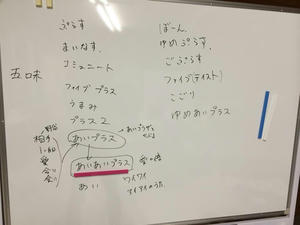 ぷらす
まいなす.
コミュニート
ファイブプラス
うまみ
プラス2
あいプラス
あいあいプラス
あい
五味
ばーん.
ゆめぷらす.
ごぷらす
ファイブ(テイスト)
こごり
ゆめあいプラス
相手
愛
会い
ワイワイ
アイアイのうた